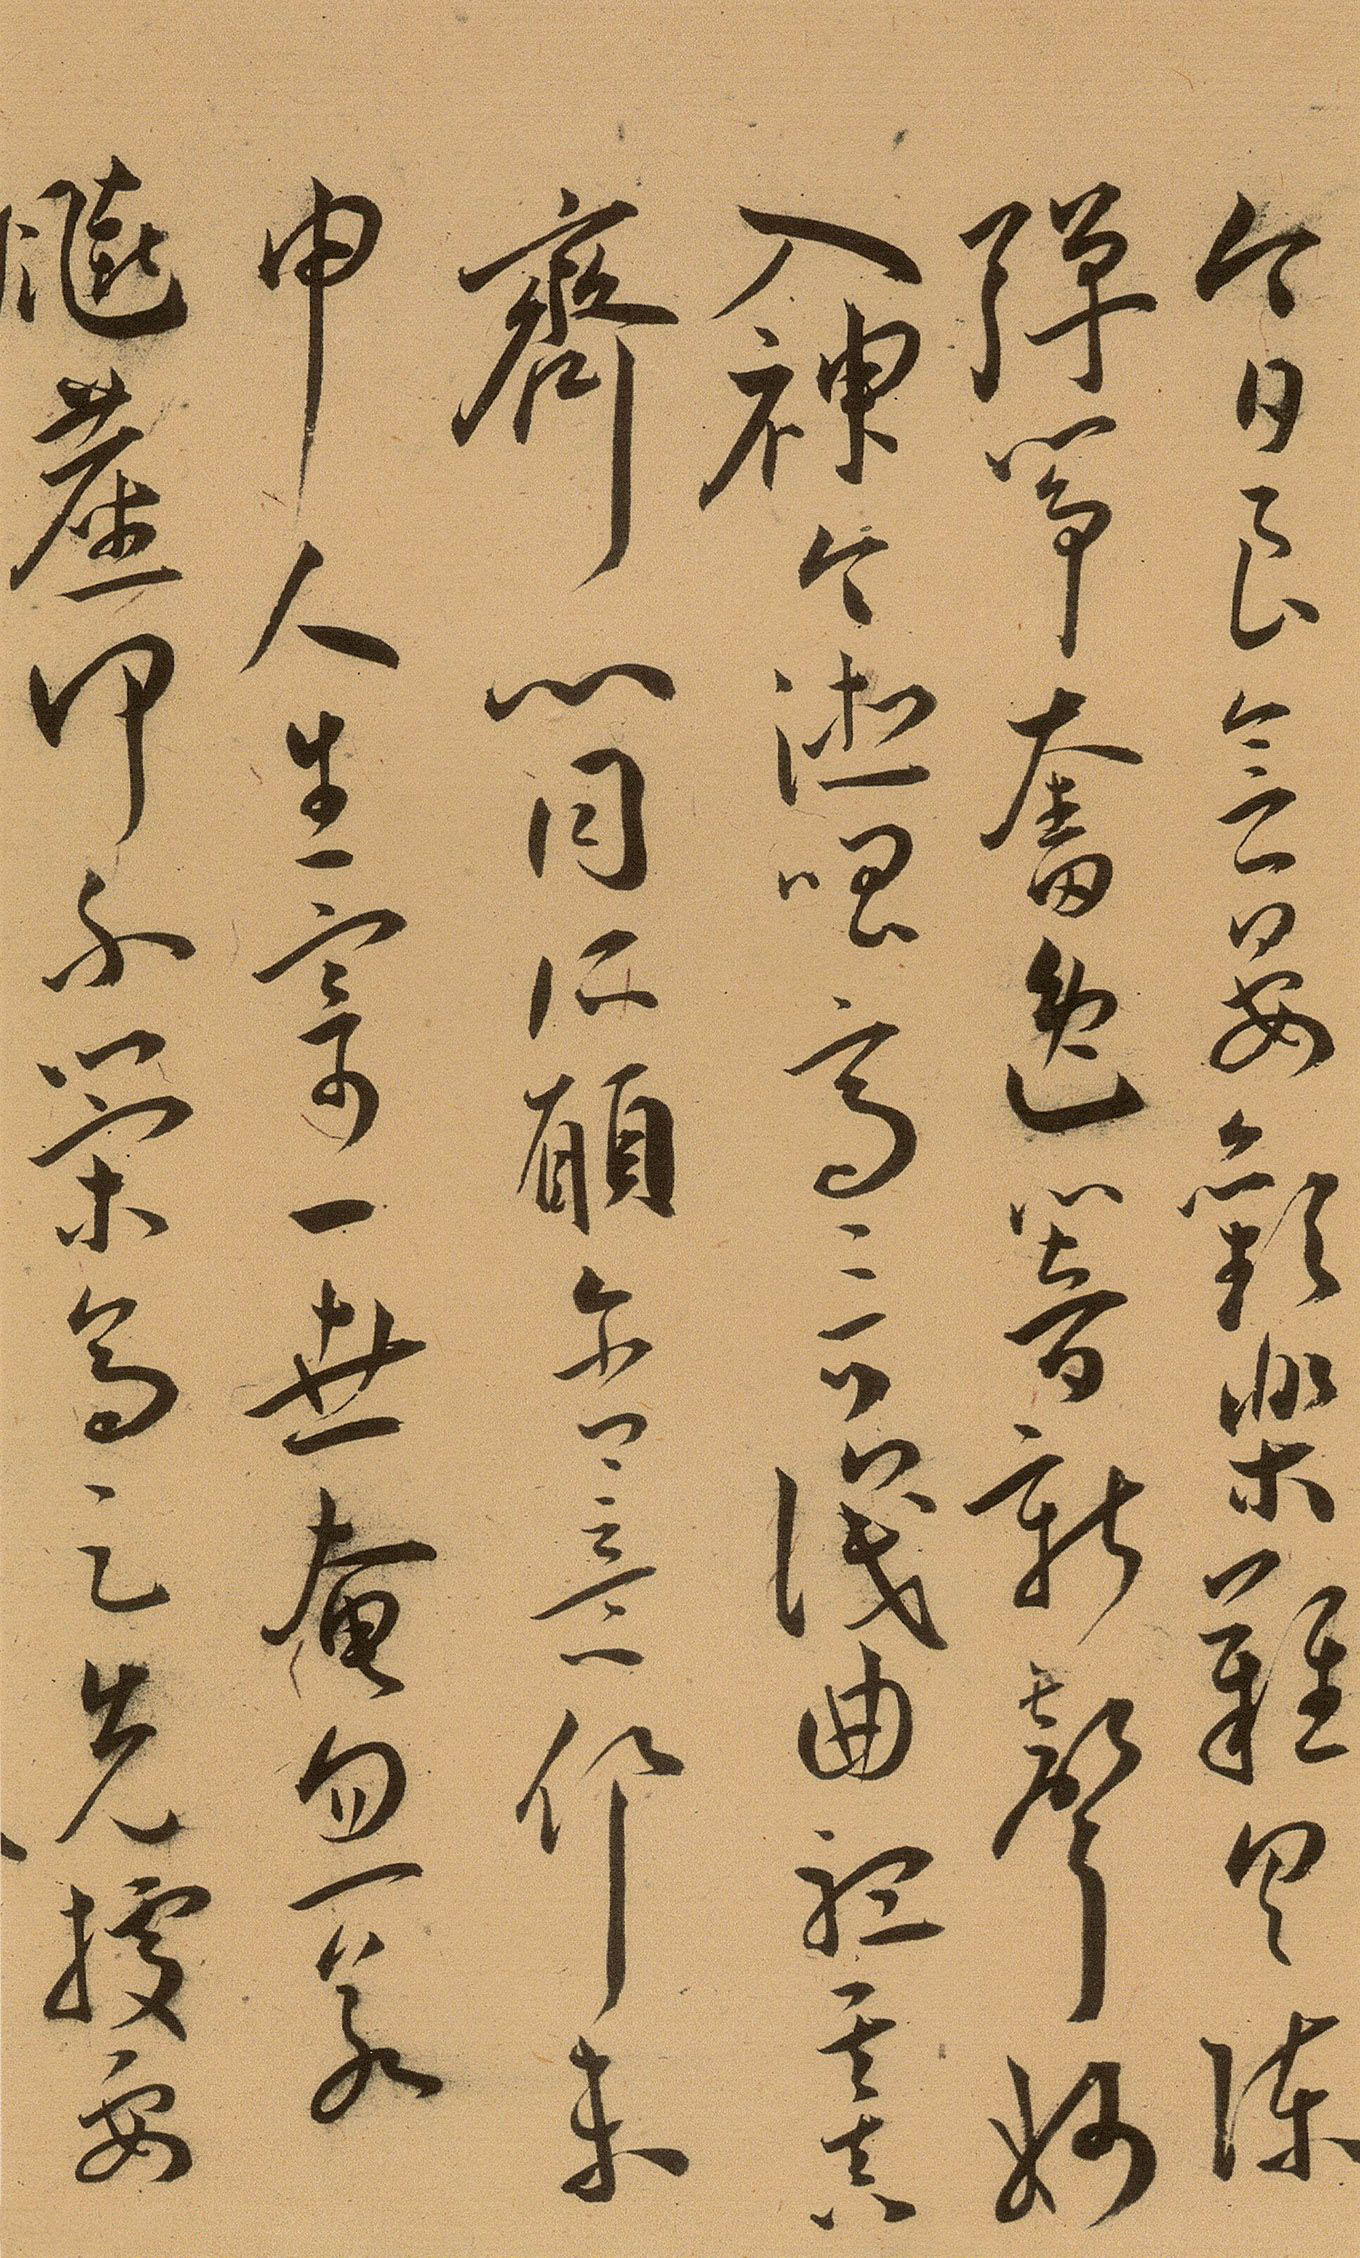 今日良會晏歡樂難具陳
彈箏奮逸響新聲妙
入神令德唱高言識曲聽其真
齊心同所願含意未
申人生寄一世奄忽若
飆塵何不策高足先據要